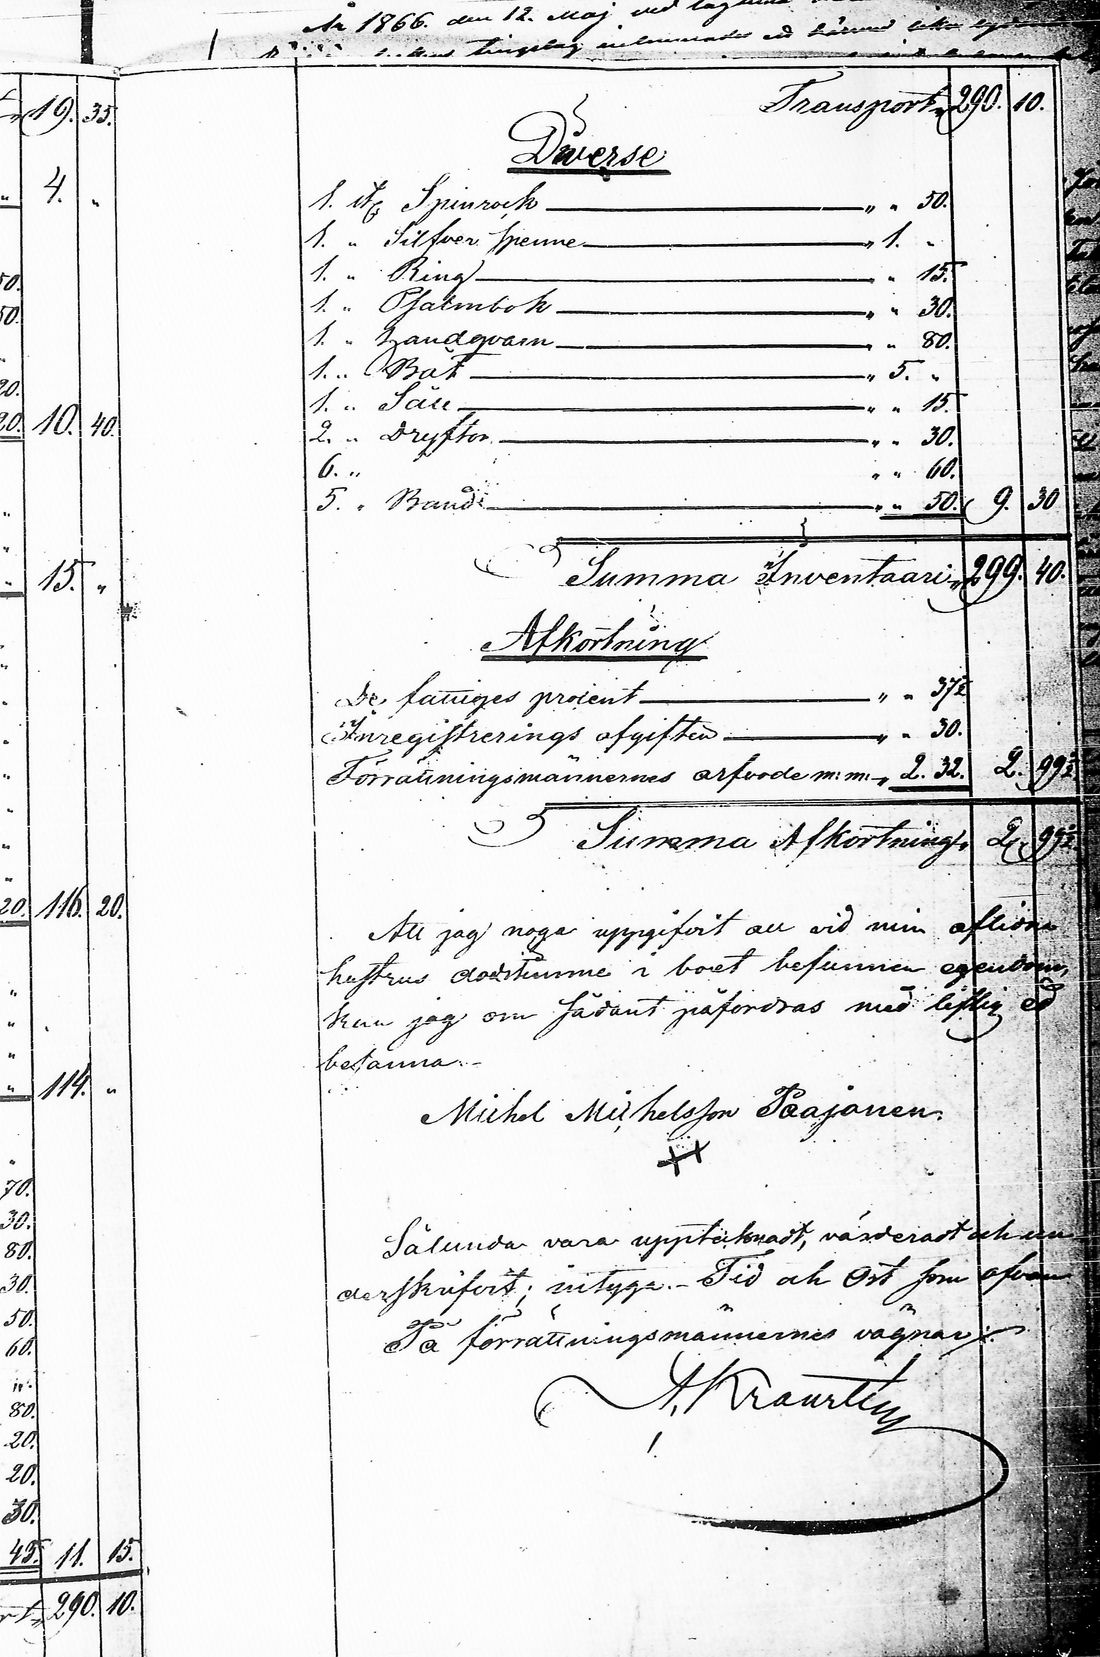 År 1866. den 12. Maj vid lagtima
19. 35.
4. "
50.
50.
20.
20. 10. 40.
15. "
20. 116. 20.
" 114. "
70.
30.
80.
30.
50.
60.
80.
20.
20.
30.
45. 11. 15.
290. 10.
Transport " 290. 10.
Diverse
1. st. Spinrock " " 50.
1. " Silfver spenne " 1. "
1. " Ring " 15.
1. " Psalmbok " " 30.
1. " Handqvarn " " 80.
1. " Båt " 5. "
1. " Såll " " 15.
2. " Dryftor " " 30.
6. " " " 60.
5. " Band " " 50. 9. 30
Summa Inventarii " 299. 40.
Afkortning
De fattiges procent " " 37½
Inregistrerings afgiften " " 30.
Förrättningsmännernes arfvode m: m: " 2. 32. 2. 99½
Summa Afkortning " 2. 99½
Att jag noga uppgifvit all vid min aflidna
hustrus dödstimme i boet befunnen egendom,
kan jag om sådant påfordras med liflig ed
betanna.-
Michel Michelsson Paajanen.
Sålunda vara upptecknadt, värderadt och un
derskrifvit; intyga.- Tid och Ort som ofvan
På förrättningsmännernes vägnar: